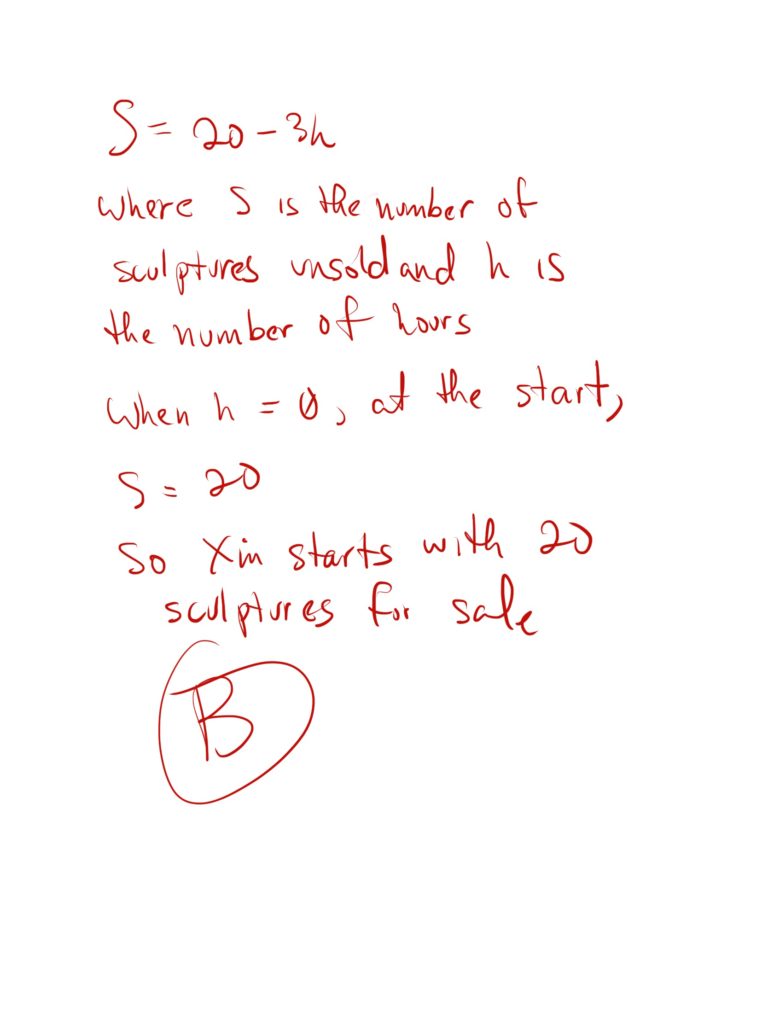 S = 20 - 3h
where S is the number of
sculptures unsold and h is
the number of hours
When h = 0, at the start,
S = 20
So Xin starts with 20
sculptures for sale
B